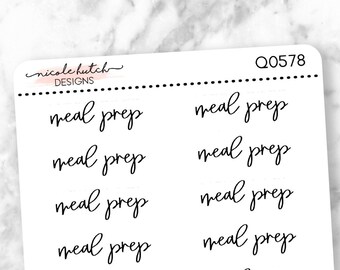 nicole hutch
DESIGNS
Q0578
meal prep meal prep
meal prep meal prep
meal prep meal prep
meal prep meal prep